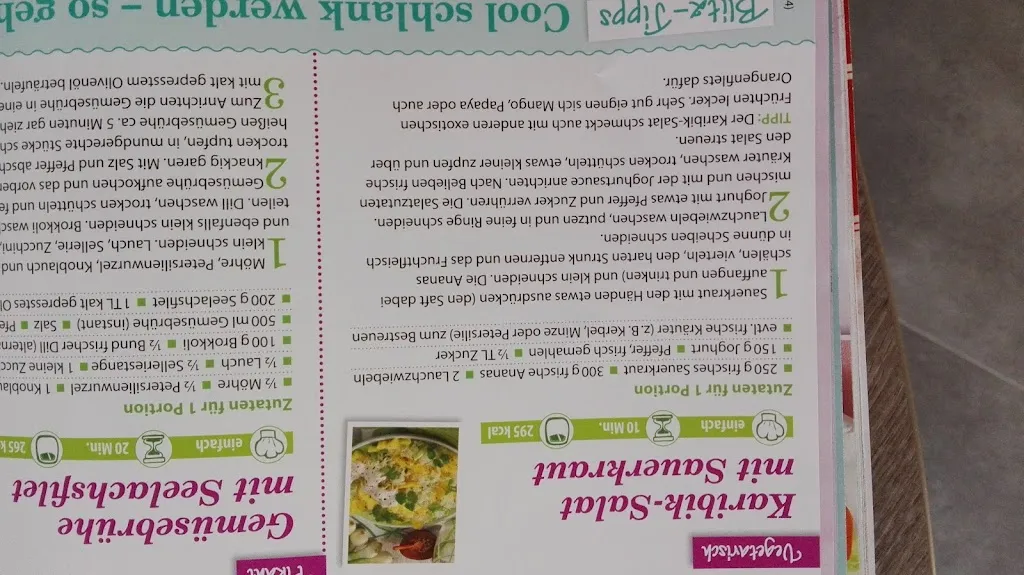 Vegetarisch
Karibik-Salat
mit Sauerkraut
einfach 10 Min. 295 kcal
Zutaten für 1 Portion
■ 250 g frisches Sauerkraut ■ 300 g frische Ananas ■ 2 Lauchzwiebeln
■ 150 g Joghurt ■ Pfeffer, frisch gemahlen ■ ½ TL Zucker
■ evtl. frische Kräuter (z. B. Kerbel, Minze oder Petersilie) zum Bestreuen
1 Sauerkraut mit den Händen etwas ausdrücken (den Saft dabei
auffangen und trinken) und klein schneiden. Die Ananas
schälen, vierteln, den harten Strunk entfernen und das Fruchtfleisch
in dünne Scheiben schneiden.
2 Lauchzwiebeln waschen, putzen und in feine Ringe schneiden.
Joghurt mit etwas Pfeffer und Zucker verrühren. Die Salatzutaten
mischen und mit der Joghurtsauce anrichten. Nach Belieben frische
Kräuter waschen, trocken schütteln, etwas kleiner zupfen und über
den Salat streuen.
TIPP: Der Karibik-Salat schmeckt auch mit anderen exotischen
Früchten lecker. Sehr gut eignen sich Mango, Papaya oder auch
Orangenfilets dafür.
Gemüsebrühe
mit Seelachsfilet
einfach 20 Min. 265 k
Zutaten für 1 Portion
■ ½ Möhre ■ ½ Petersilienwurzel ■ 1 Knobla
■ ½ Lauch ■ ½ Selleriestange ■ 1 kleine Zucc
■ 100 g Brokkoli ■ ½ Bund frischer Dill (alterna
■ 500 ml Gemüsebrühe (instant) ■ Salz ■ Pfe
■ 200 g Seelachsfilet ■ 1 TL kalt gepresstes Ol
1 Möhre, Petersilienwurzel, Knoblauch und
klein schneiden. Lauch, Sellerie, Zucchini,
und ebenfalls klein schneiden. Brokkoli wasc
teilen. Dill waschen, trocken schütteln und fe
2 Gemüsebrühe aufkochen und das vorber
knackig garen. Mit Salz und Pfeffer absch
trocken tupfen, in mundgerechte Stücke sch
heißen Gemüsebrühe ca. 5 Minuten gar zieh
3 Zum Anrichten die Gemüsebrühe in eine
mit kalt gepresstem Olivenöl beträufeln.
Blitz-Tipps
Cool schlank werden – so geh